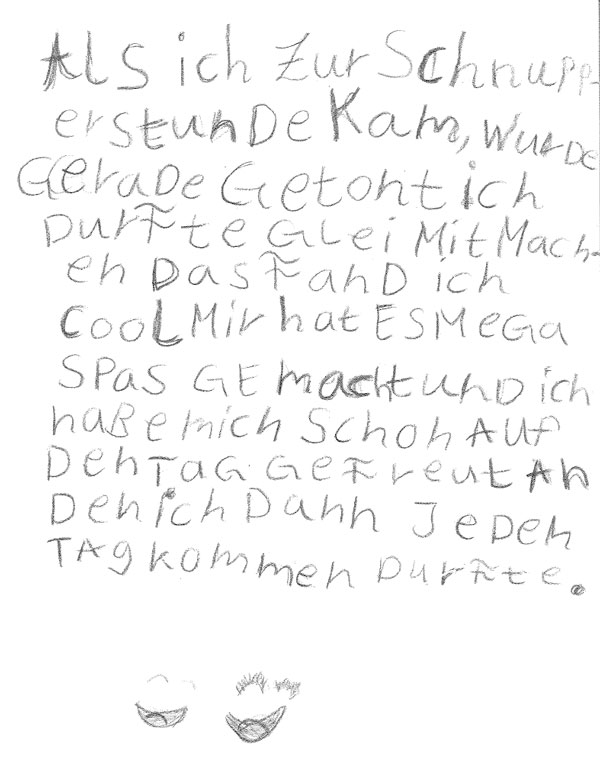 ALS ich Zur Schnupp-
erstunDe Kam, WurDe
GeraDe Getont ich
Durfte GLei MitMach-
en DasFanD ich
CooL Mir hat ESMeGa
SPaS GEmacht unD ich
haBe mich Schon AuF
DenTaG GeFreut An
Den ich Dann JeDen
TAgkommen Durfte.